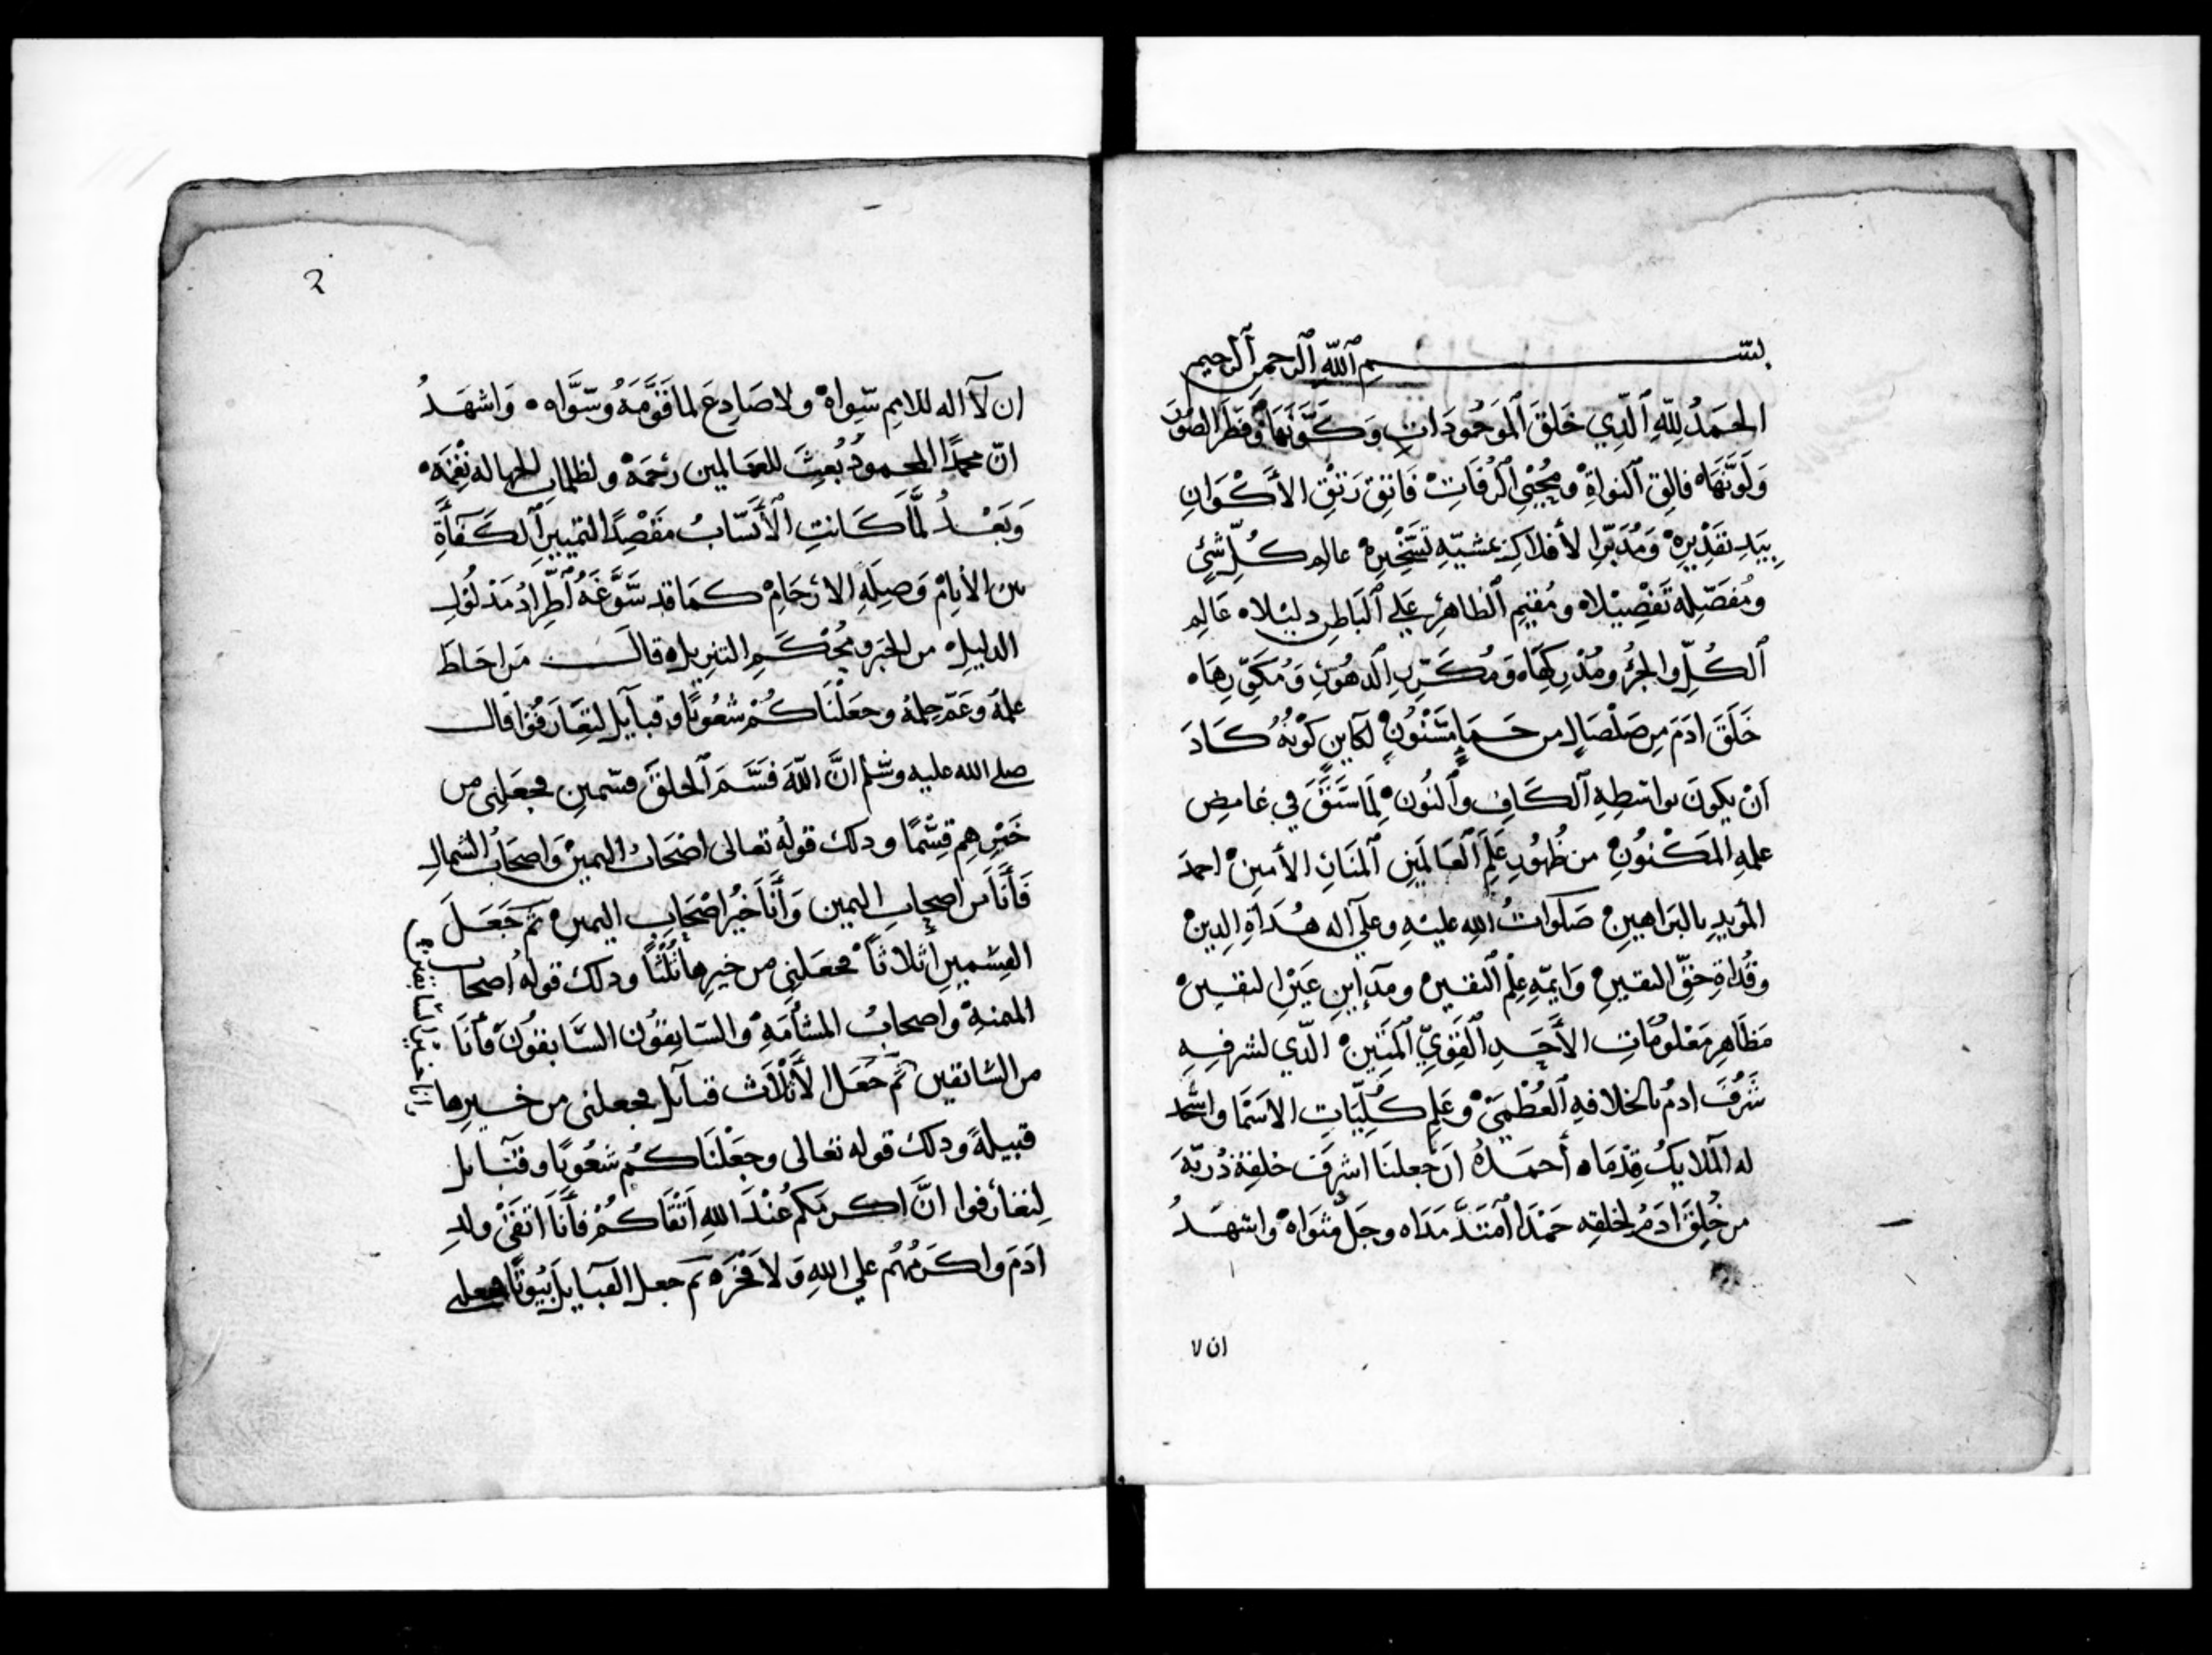 بسم الله الرحمن الرحيم
الحَمدُ لِلّهِ الّذِي خَلقَ المَوجُودَاتِ وَكَوَّنَهَا وَفَطَرَ الصُّوَرَ
وَلَوَّنَهَا فالِق النواةِ ومُحْيي الرُّفَاتِ فَاتِق رَتْقِ الأكْوَانِ
بِيَدِ تقدِيرِهِ وَمُدَبِّرِ الأفلاكِ بمشيّهِ تَسْخِيرِهِ عالِم كُلِّ شَيْءٍ
ومُفَصِّلِه تَفْصِيْلا ومُقيمِ الظاهِرِ عَلى البَاطِن دليْلا عَالِم
الكُلِّ والجُزْءِ ومُدْرِكِهَا وَمُكَرِّرِ الدهُورِ وَمُكَوِّرِهَا
خَلَقَ ادَمَ مِن صَلْصَالٍ من حَمَإٍ مَسْنُونٍ لكاينٍ كَوْنُهُ كَادَ
أنْ يكونَ بواسطِهِ الكَافِ والنُون لِمَا سَبَقَ في غامِضِ
علمِهِ المَكْنُونِ من ظُهُورِ عَلَمِ العَالَمِينِ المَنَارِ الأمِينِ احمدَ
المؤيدِ بالبَراهِينِ صَلَوَاتُ اللهِ عليْهِ وعلى آله هُدَاةِ الدِينِ
وقُدَاةِ حقّ اليقينِ وَايمّهِ عِلْمِ اليقين ومَرَايَا عَيْنِ اليقينِ
مَظَاهِرِ مَعْلُومَاتِ الأحَدِ القَوِيِّ المَتِينِ الّذي لشرفِهِ
شَرُفَ ادمُ بالخلافهِ العُظْمَى وعَلِمَ كُلِّيَّاتِ الاسَمَا واسْجد
له الملايكَ قِدْمَا أحمَدُهُ أن جعلنَا اشرفَ خليفة ذُريّةَ
من خُلِقَ ادَمُ لخلقِه حَمْدًا امْتَدَّ مَدَاه وجَلَّ مثوَاه واشهَدُ
ان لا
ان لآ اله للامم سِوَاهْ ولا صَادِعَ لما قَوَّمَهُ وسَوَّاه وَاشهَدُ
انّ محمدًا المحمودُ بُعِثَ للعَالمين رَحمَهْ ولظلمات الجهاله نِعْمَه
وَبَعْدُ لَمَّا كَانتِ الأنسَابُ مَقْصِدًا لتمييزِ الكَفَأةِ
من الأنامْ وَصِلَةِ الارْحَامْ كمَا قد سَوَّغَهُ اطِّرادُ مَدْلُولِ
الدليلِ من الخبَر ومُحْكَمِ التنزيلِ قالَ من احَاطَ
علمُهُ وَعَمّ حِلمُهُ وجعَلْنَاكُمْ شعُوبًا وقبآيلَ لتعَارَفُوا قال
صلى الله عليه وسلم انَّ اللّهَ قَسَّمَ الخلقَ قسمينِ فجعَلنِى من
خَيْرِهِم قِسْمًا ودلك قولُه تعالى اصْحَابُ اليمينِ وَاصحَابُ الشمالِ
فَأنَا من اصحابِ اليمينِ وَأنَا خَيْرُ اصْحَابِ اليمينِ ثم جَعَلَ
القِسْمينِ اثلاثًا فجعَلنِى من خيرِهَا ثُلُثًا ودلك قولهُ أصحاب
الميمنهِ واصحابُ المشأمَهِ والسَابِقُون السَّابقُونَ فأنَا
من السَّابقين ثم جَعَل الأثْلَاثَ قبآيل فجعلنى من خيرِها
قبيلةً ودلك قوله تعالى وجعَلْنَاكُم شعُوبًا وقبآيل
لِتعَارفوا انَّ اكرمَكم عُنْدَ اللهِ اَتقَاكُمْ فأنَا اتقَى ولدِ
ادَمَ واكَرَمُهُم على اللهِ وَلا فَخْرَ ثم جعل القبايلَ بُيُوتًا فجعلنى
وانا خير السابقين